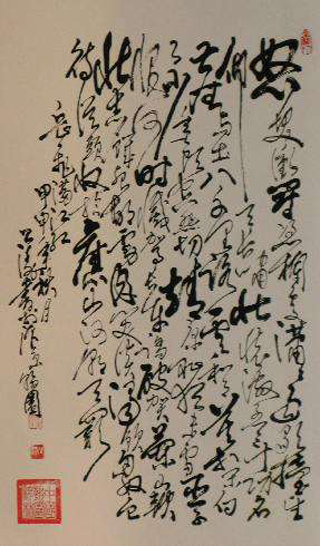 怒髮衝冠憑欄處瀟瀟雨歇擡望
眼仰天長嘯壯懷激烈三十功名
塵與土八千里路雲和月莫等閒白
了少年頭空悲切靖康恥猶未雪臣子
恨何時滅駕長車踏破賀蘭山缺
壯志飢餐胡虜肉笑談渴飲匈奴血
待從頭收拾舊山河朝天闕
岳飛滿江紅
甲申年